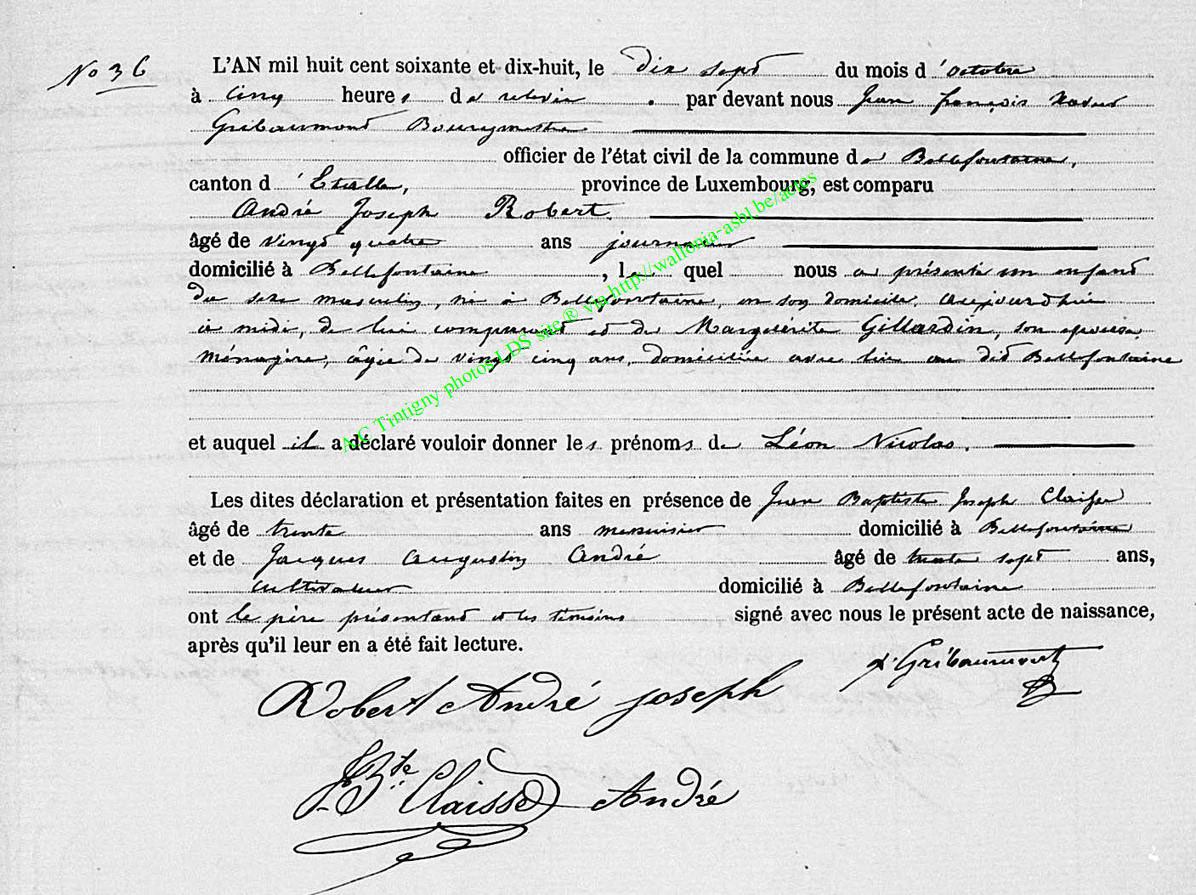 No 36
L'AN mil huit cent soixante et dix-huit, le dix sept du mois d'octobre
à cinq heures de relevée . par devant nous Jean françois Xavier
Gribaumont Bourgmestre
officier de l'état civil de la commune de Bellefontaine,
canton d'Etalle, province de Luxembourg, est comparu
André Joseph Robert.
âgé de vingt quatre ans journalier
domicilié à Bellefontaine , lequel nous a présenté un enfant
du sexe masculin, né à Bellefontaine, en son domicile, aujourd'hui
à midi, de lui comparant et de Marguerite Gillardin, son épouse,
Ménagère, âgée de vingt cinq ans, domiciliée avec lui au dit Bellefontaine
et auquel il a déclaré vouloir donner les prénoms de Léon Nicolas.
Les dites déclaration et présentation faites en présence de Jean Baptiste Joseph Claisse
âgé de trente ans menuisier domicilié à Bellefontaine
et de Jacques Augustin André âgé de trente sept ans,
cultivateur domicilié à Bellefontaine
ont le père présentant et les témoins signé avec nous le présent acte de naissance,
après qu'il leur en a été fait lecture.
Gribaumont
Robert André joseph
JBte Claisse André
AC Tintigny photos LDS site ® via http://wallonia-asbl.be/actes